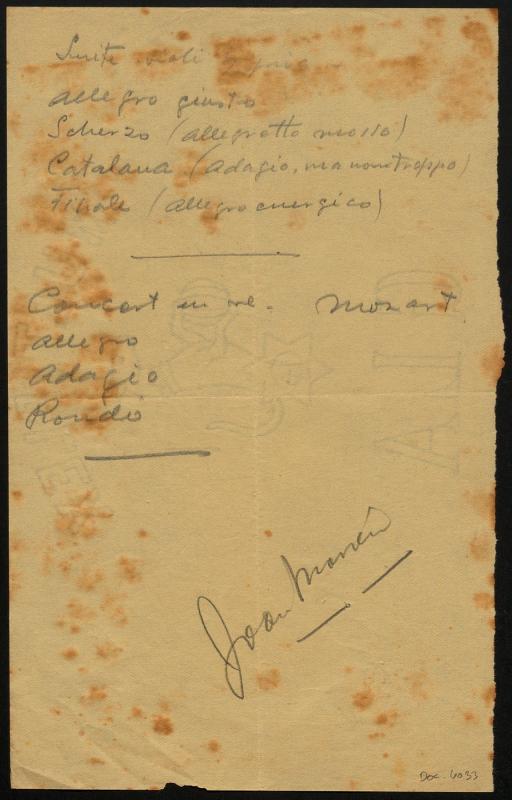 Suite violí
allegro giusto
Scherzo (allegretto mosso)
Catalana (Adagio, ma non troppo)
Finale (allegro energico)
Concert en re. Mozart
allegro
Adagio
Rondó
Joan Manén
Doc. 6033